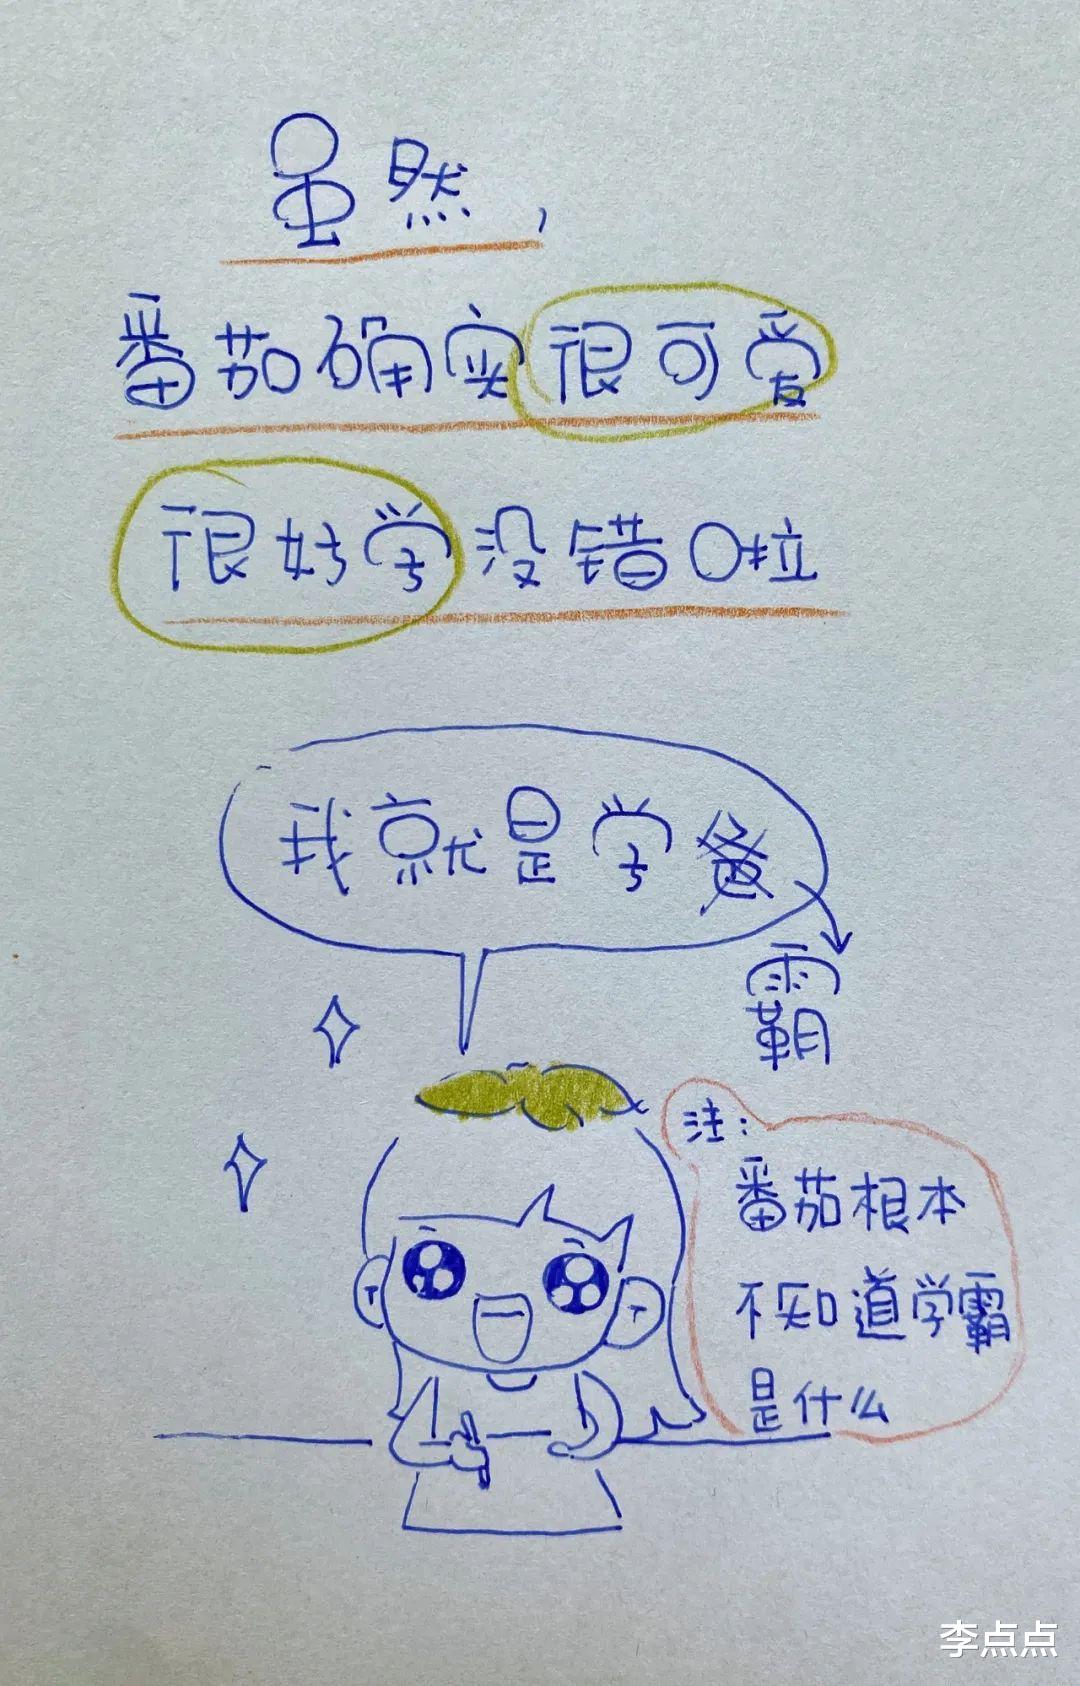 虽然，
番茄确实很可爱
很好学没错啦
我就是学爸
霸
注：
番茄根本
不知道学霸
是什么
李点点